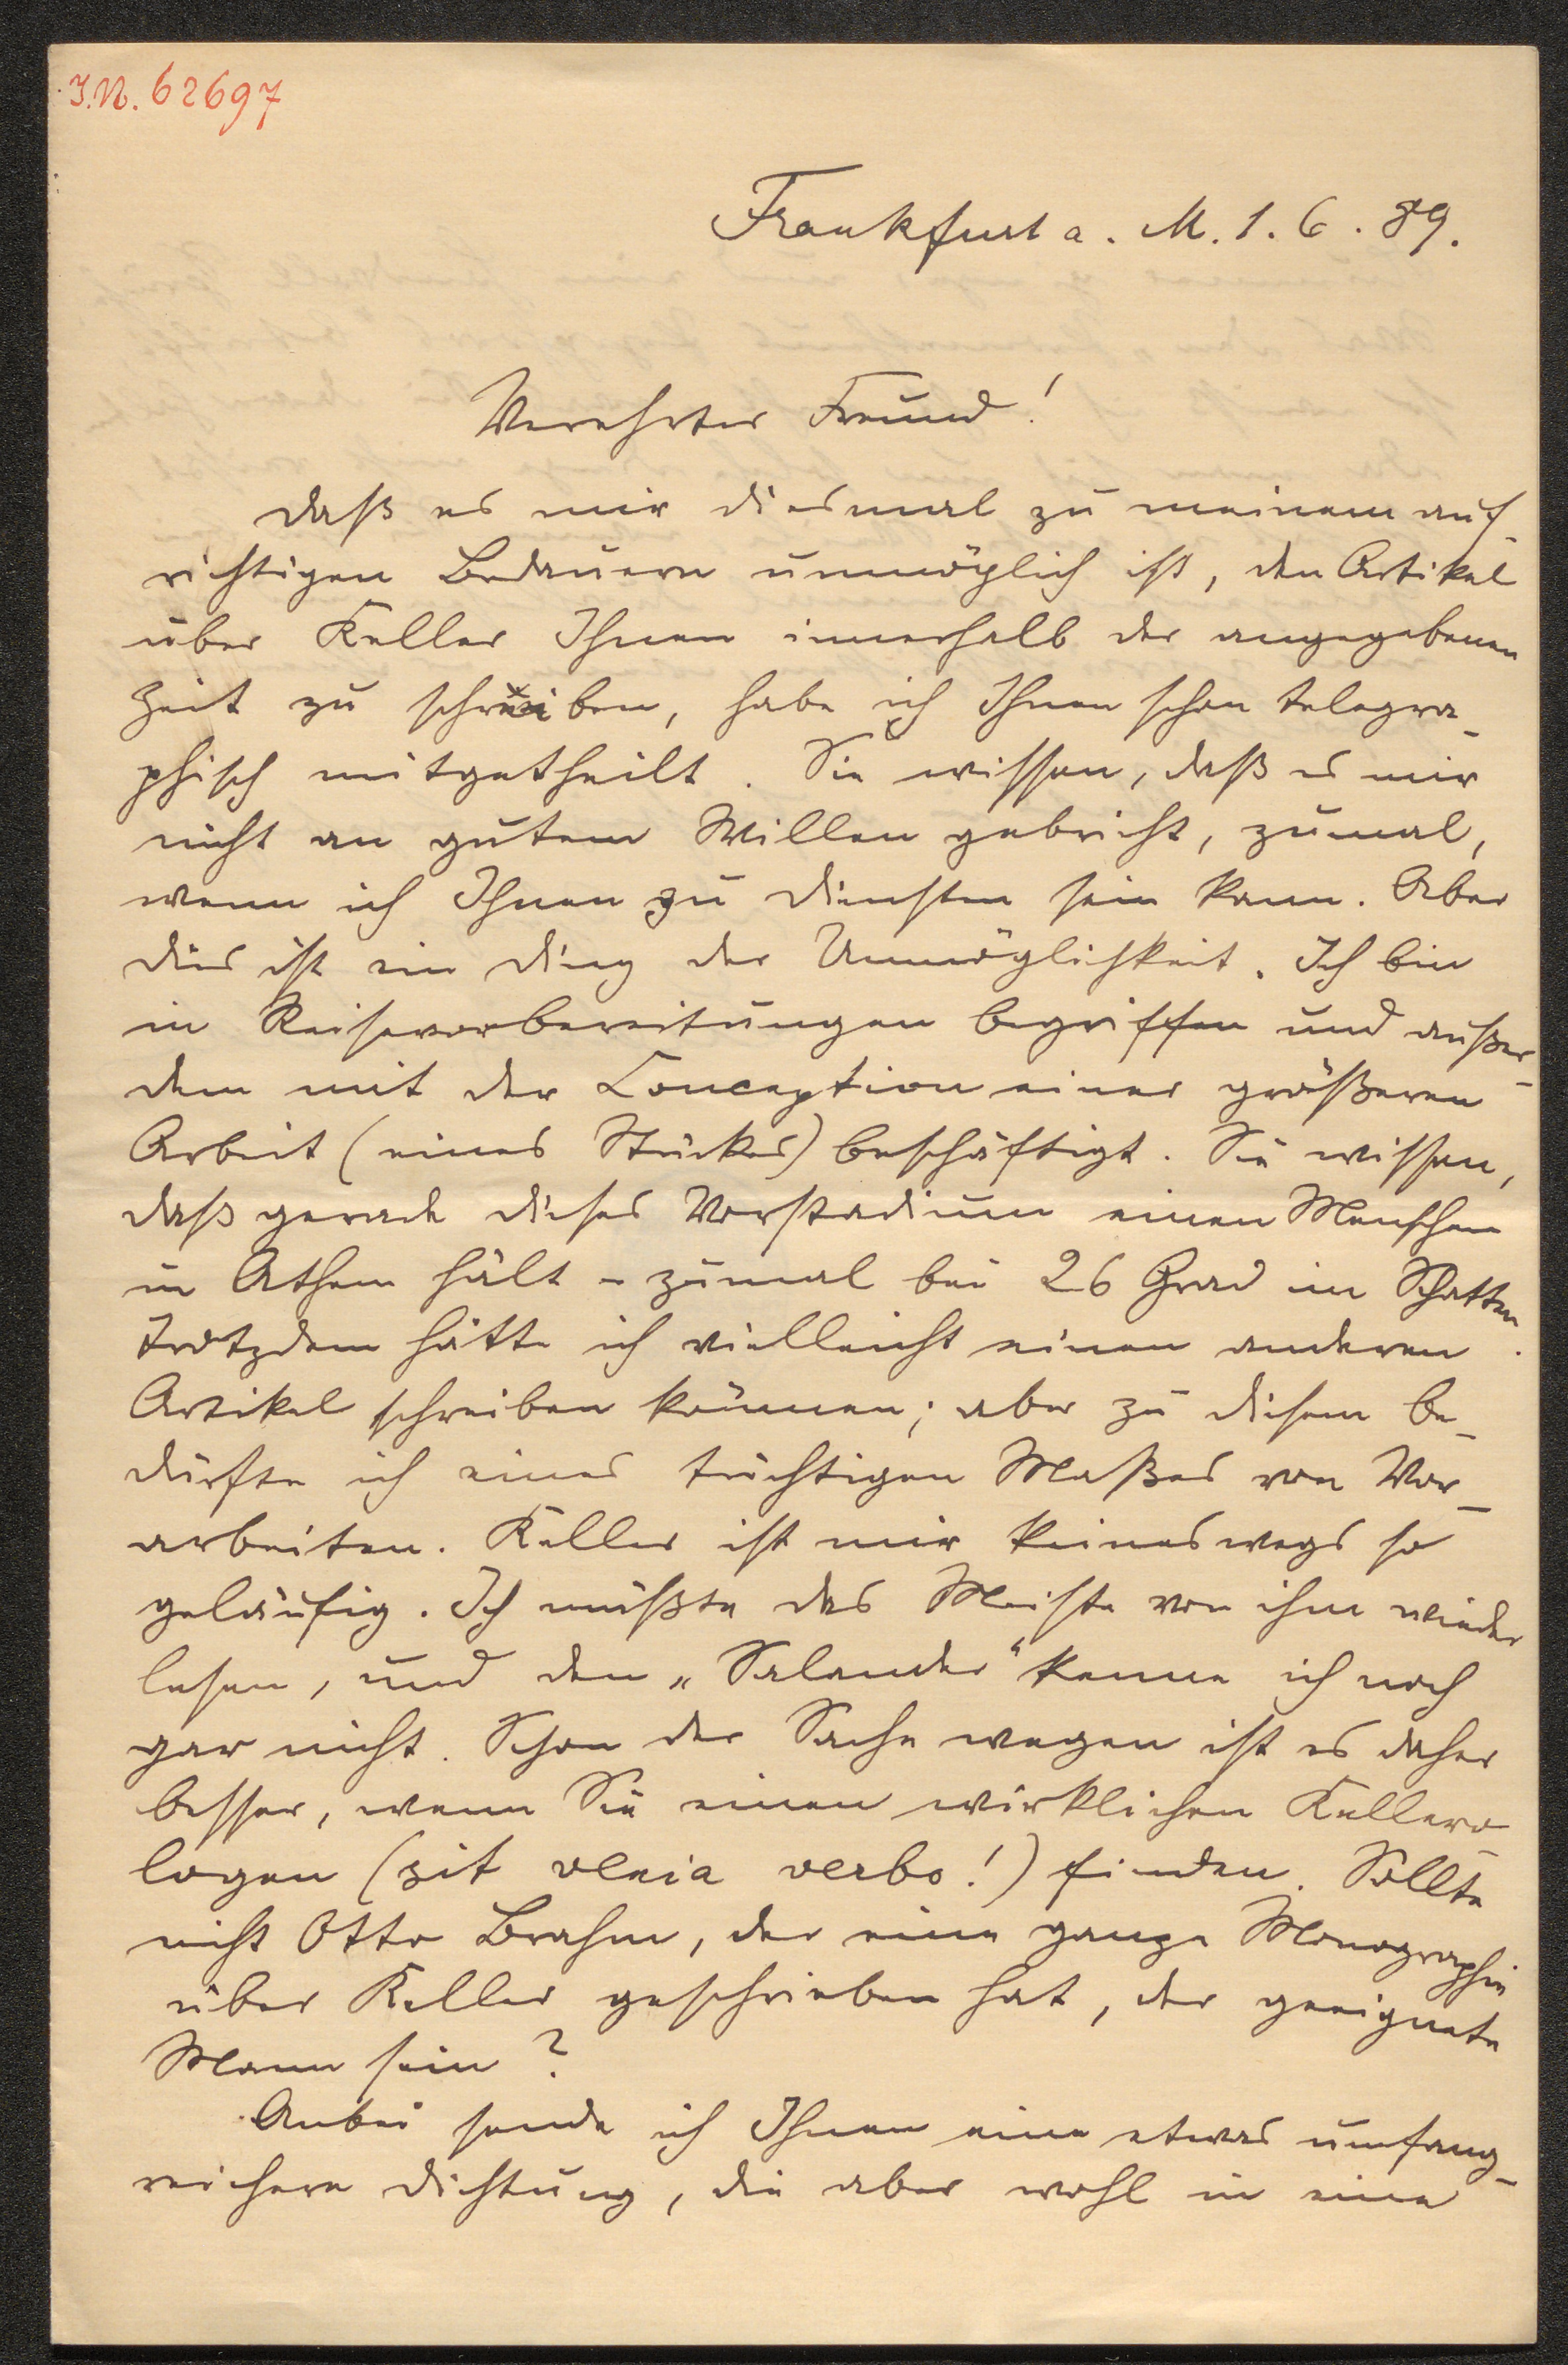 I.N. 62697
Frankfurt a. M. 1. 6. 89.
Verehrter Freund!
Daß es mir diesmal zu meinem auf-
richtigen Bedauern unmöglich ist, den Artikel
über Keller Ihnen innerhalb der angegebenen
Zeit zu schreiben, habe ich Ihnen schon telegra-
phisch mitgetheilt. Sie wissen, daß es mir
nicht an gutem Willen gebricht, zumal,
wenn ich Ihnen zu Diensten sein kann. Aber
dies ist ein Ding der Unmöglichkeit. Ich bin
in Reisevorbereitungen begriffen und außer-
dem mit der Conception einer größeren
Arbeit (eines Stückes) beschäftigt. Sie wissen,
daß gerade dieses Vorstadium einen Menschen
in Athem hält – zumal bei 26 Grad im Schatten.
Trotzdem hätte ich vielleicht einen anderen
Artikel schreiben können; aber zu diesem be-
dürfte ich eines tüchtigen Maßes von Vor-
arbeiten. Keller ist mir keineswegs so
geläufig. Ich müßte das Meiste von ihm wieder
lesen, und den „Salander“ kenne ich noch
gar nicht. Schon der Sache wegen ist es daher
besser, wenn Sie einen wirklichen Kellero-
logen (sit venia verbo!) finden. Sollte
nicht Otto Brahm, der eine ganze Monographie
über Keller geschrieben hat, der geeignete
Mann sein?
Anbei sende ich Ihnen eine etwas umfang-
reichere Dichtung, die aber wohl in eine